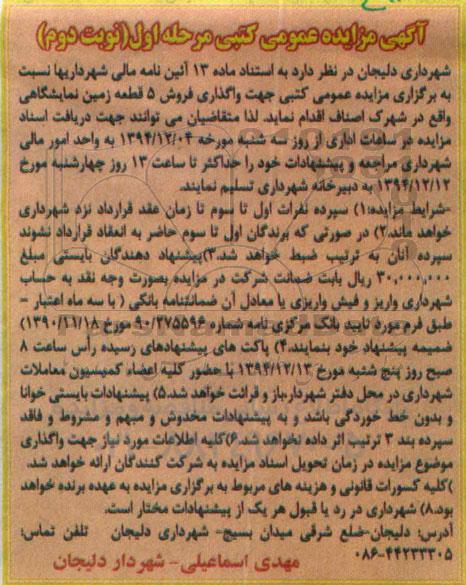 آگهی مزایده عمومی کتبی مرحله اول(نوبت دوم)
شهرداری دلیجان در نظر دارد به استناد ماده ۱۳ آئین نامه مالی شهرداریها نسبت
به برگزاری مزایده عمومی کتبی جهت واگذاری فروش ۵ قطعه زمین نمایشگاهی
واقع در شهرک اصناف اقدام نماید. لذا متقاضیان می توانند جهت دریافت اسناد
مزایده در ساعات اداری از روز سه شنبه مورخه ۱۳۹۴/۱۲/۰۴ به واحد امور مالی
شهرداری مراجعه و پیشنهادات خود را حداکثر تا ساعت ۱۳ روز چهارشنبه مورخ
۱۳۹۴/۱۲/۱۲ به دبیرخانه شهرداری تسلیم نمایند.
-شرایط مزایده:۱) سپرده نفرات اول تا سوم تا زمان عقد قرارداد نزد شهرداری
خواهد ماند.۲) در صورتی که برندگان اول تا سوم حاضر به انعقاد قرارداد نشوند
سپرده آنان به ترتیب ضبط خواهد شد.۳)پیشنهاد دهندگان بایستی مبلغ
۳۰,۰۰۰,۰۰۰ ریال بابت ضمانت شرکت در مزایده بصورت وجه نقد به حساب
شهرداری واریز و فیش واریزی یا معادل آن ضمانتنامه بانکی ( با سه ماه اعتبار -
طبق فرم مورد تایید بانک مرکزی نامه شماره ۹۰/۲۷۵۵۹۶ مورخ ۱۳۹۰/۱۱/۱۸)
ضمیمه پیشنهاد خود بنمایند.۴) پاکت های پیشنهادهای رسیده رأس ساعت ۸
صبح روز پنج شنبه مورخ ۱۳۹۴/۱۲/۱۳ با حضور کلیه اعضاء کمیسیون معاملات
شهرداری در محل دفتر شهردار،باز و قرائت خواهد شد.۵) پیشنهادات بایستی خوانا
و بدون خط خوردگی باشد و به پیشنهادات مخدوش و مبهم و مشروط و فاقد
سپرده بند ۳ ترتیب اثر داده نخواهد شد.۶)کلیه اطلاعات مورد نیاز جهت واگذاری
موضوع مزایده در زمان تحویل اسناد مزایده به شرکت کنندگان ارائه خواهد شد.
)کلیه کسورات قانونی و هزینه های مربوط به برگزاری مزایده به عهده برنده خواهد
بود.۸) شهرداری در رد یا قبول هر یک از پیشنهادات مختار است.
آدرس: دلیجان-ضلع شرقی میدان بسیج- شهرداری دلیجان تلفن تماس:
۰۸۶-۴۴۲۲۳۳۰۵
مهدی اسماعیلی- شهردار دلیجان